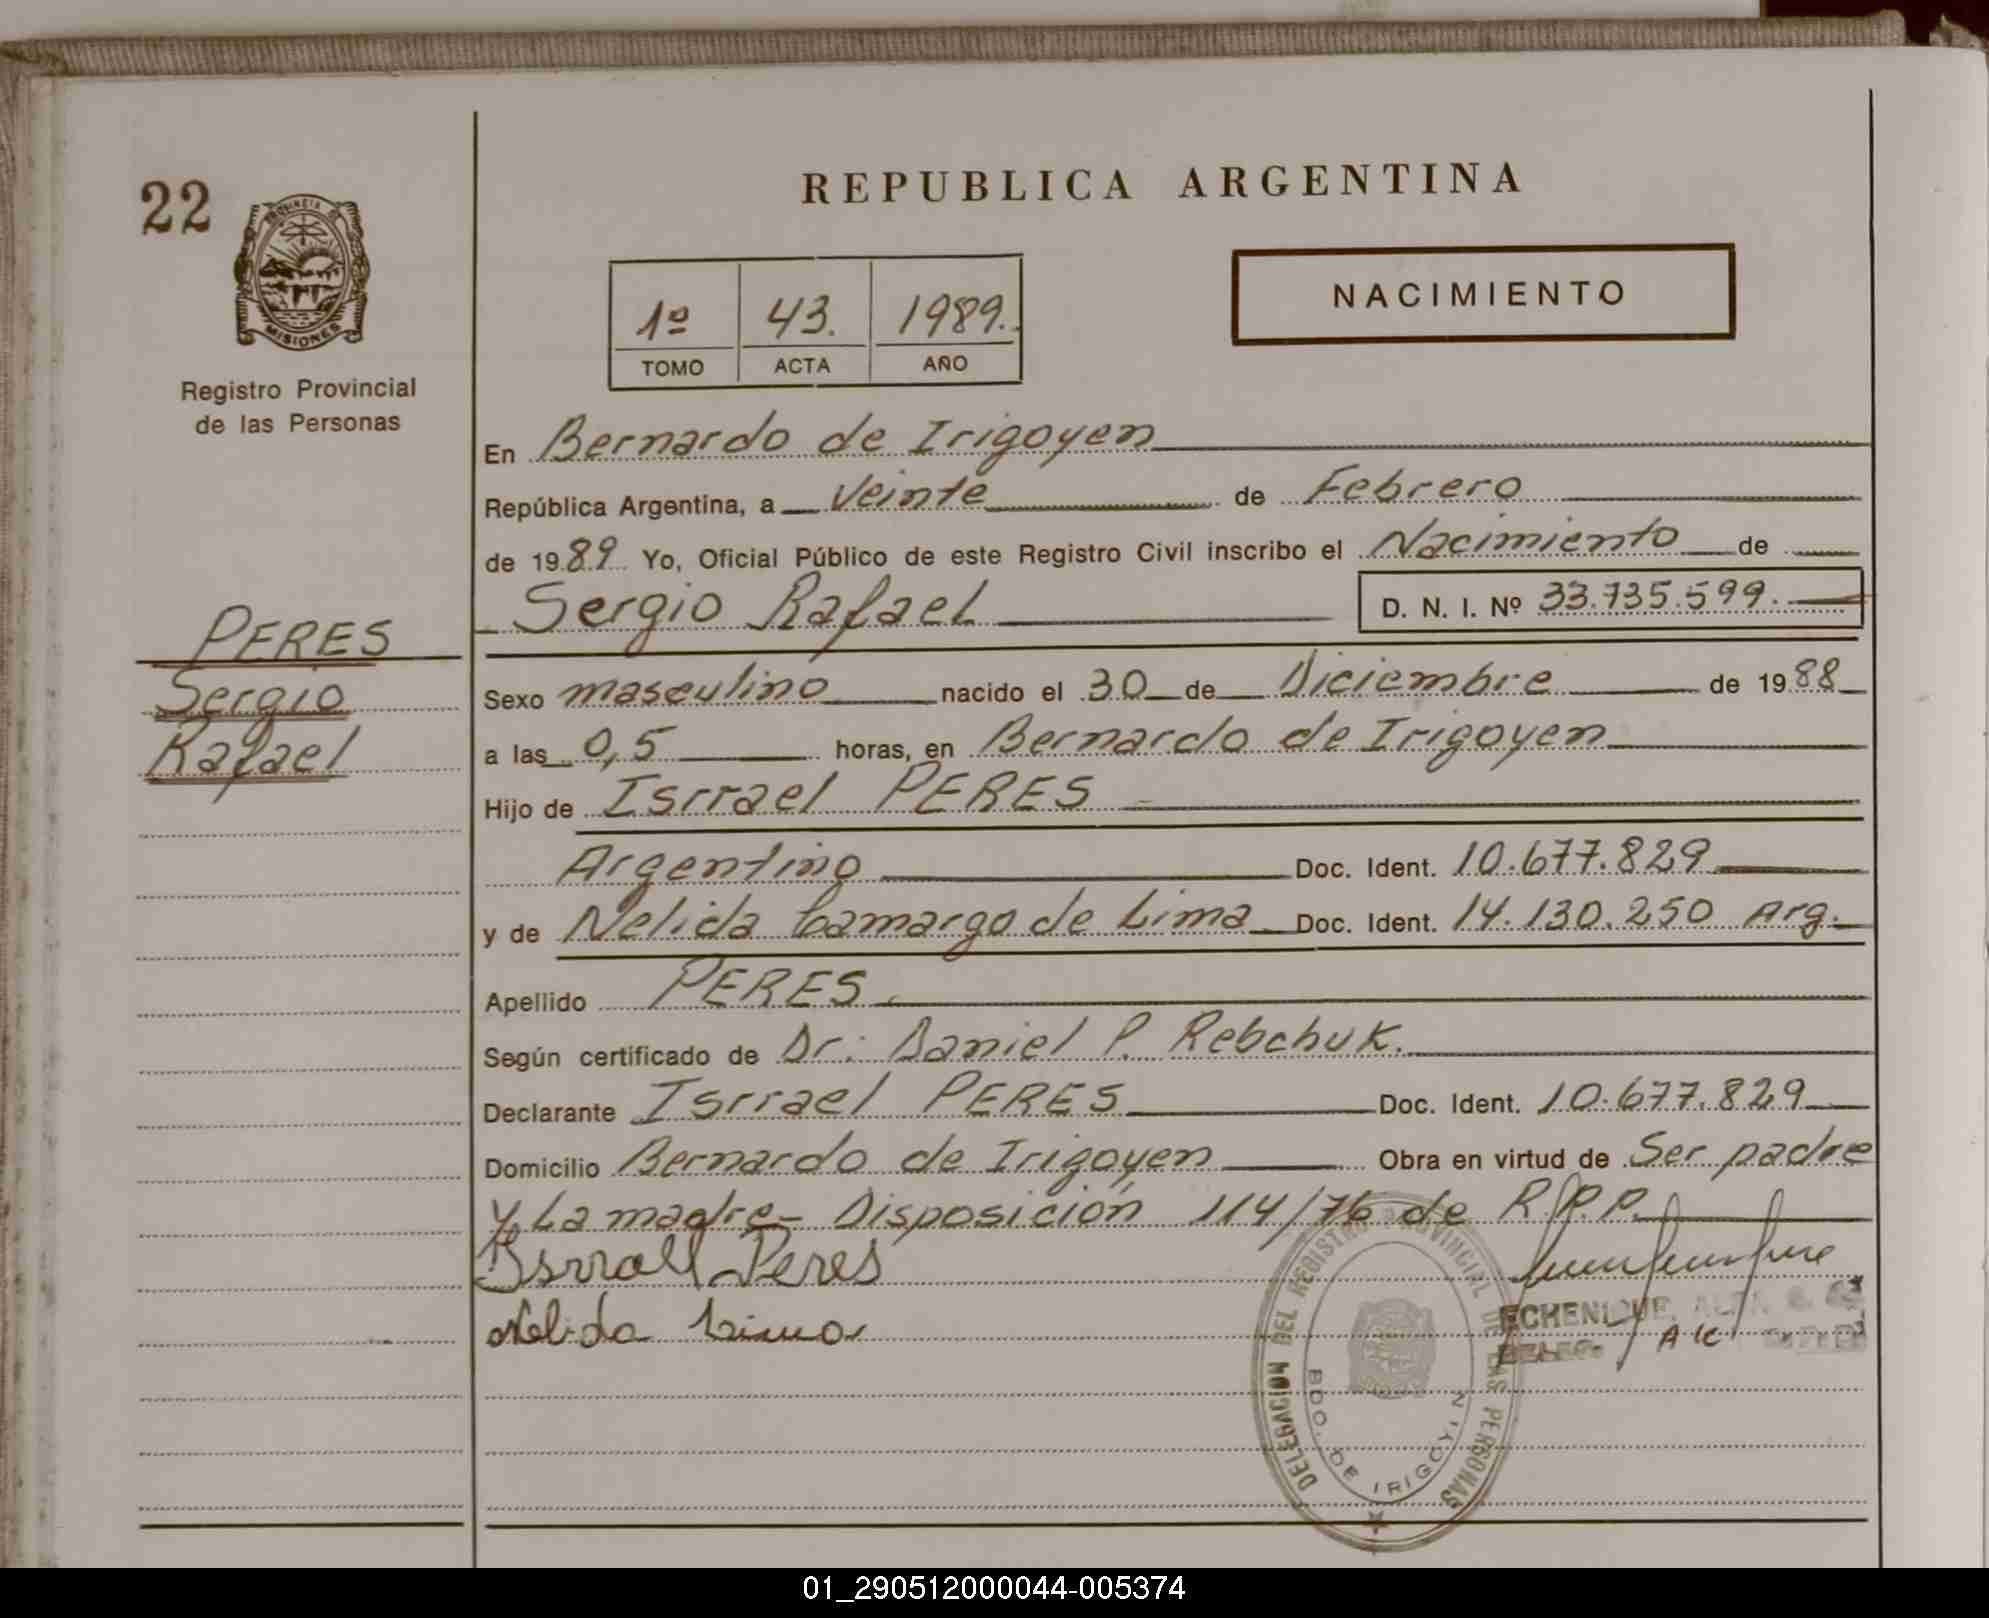 22
PROVINCIA DE
MISIONES
Registro Provincial
de las Personas
REPUBLICA ARGENTINA
1º 43. 1989.
TOMO ACTA AÑO
NACIMIENTO
En Bernardo de Irigoyen
República Argentina, a Veinte de Febrero
de 1989 Yo, Oficial Público de este Registro Civil inscribo el Nacimiento de
Sergio Rafael D. N. I. Nº 33.735.599.
PERES
Sergio
Rafael
Sexo masculino nacido el 30 de Diciembre de 1988
a las 0,5 horas, en Bernardo de Irigoyen
Hijo de Isrrael PERES
Argentino Doc. Ident. 10.677.829
y de Nelida Camargo de Lima Doc. Ident. 14.130.250 Arg.
Apellido PERES
Según certificado de Dr: Daniel P. Rebchuk.
Declarante Isrrael PERES Doc. Ident. 10.677.829
Domicilio Bernardo de Irigoyen Obra en virtud de Ser padre
y La madre- Disposición 114/76 de R.P.P.
Isrrall Peres
Nelida Lima
DELEGACION DEL REGISTRO PROVINCIAL DE LAS PERSONAS
BDO. DE IRIGOYEN
ECHENIQUE
01_290512000044-005374